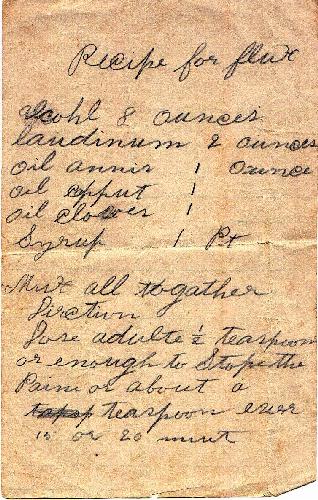 Recipe for flux
Alcohl 8 ounces
laudinum 2 ounces
oil annis 1 Ounce
oil 1
oil cloves 1
Syrup 1 Pt
Mix all togather
Direction
Dose adulte ½ teaspoon
or enough to Stope the
Pain or about a
teaspoon ever
15 or 20 minut